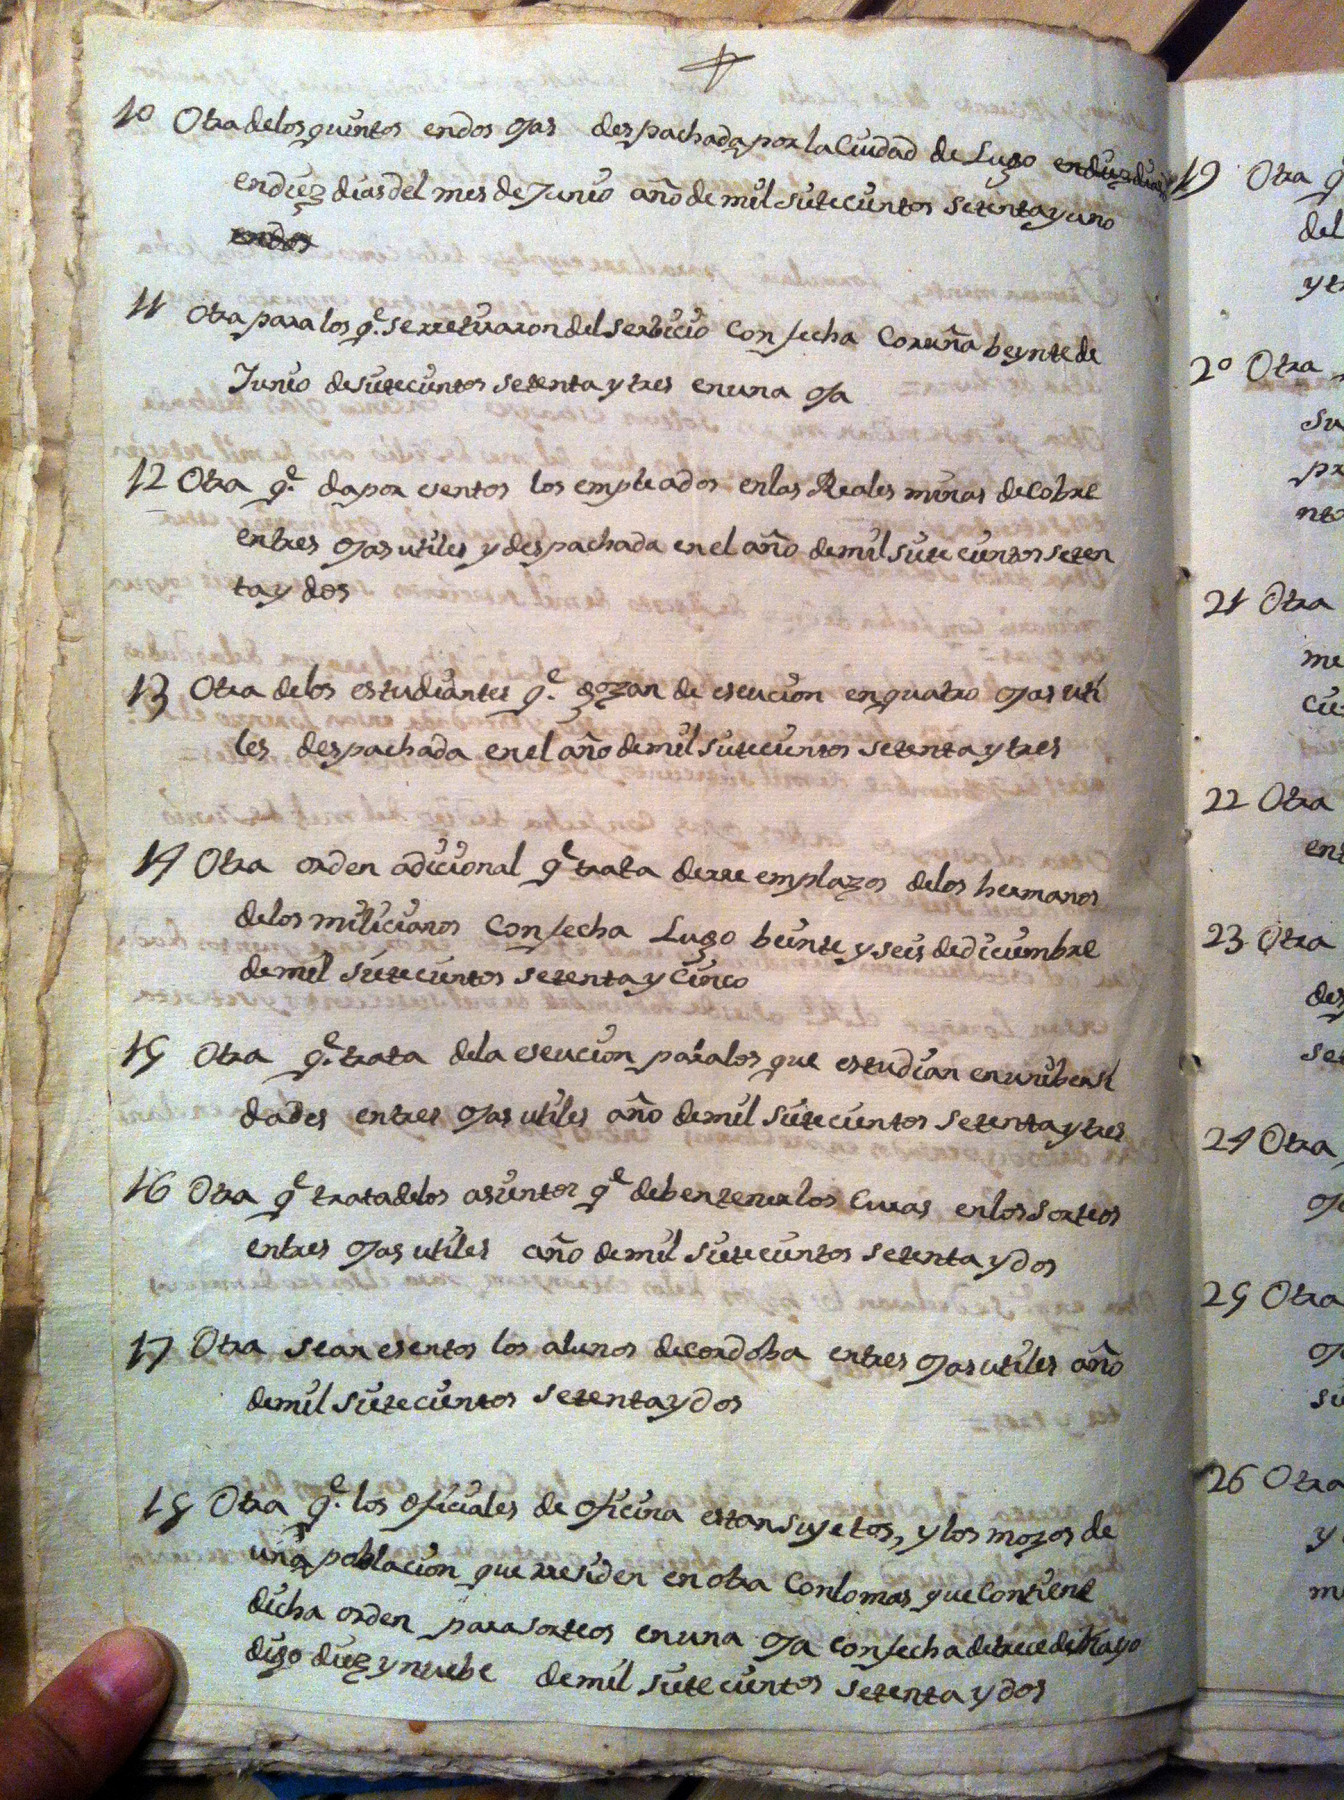 10 Otra delos quintos endos ojas despachada por la Ciudad de Lugo endiez dias
endiez dias del mes de Junio año de mil sietecientos setenta y uno
endos
11 Otra para los q.e serretiraron del serbicio Con fecha Coruña beynte de
Junio de sietecientos setenta y tres en una oja
12 Otra q.e da por esentos los empleados enlas Reales minas de Cobre
entres ojas utiles y despachada en el año de mil siete cientos seten
ta y dos
13 Otra delos estudiantes q.e gozan de esencion en quatro ojas uti
les despachada en el año de mil sietecientos setenta y tres
14 Otra orden adicional q.e trata derre emplazos delos hermanos
delos milicianos Con fecha Lugo beinte y seis de diciembre
de mil sietecientos setenta y Cinco
15 Otra q.e trata dela esencion para los que estudian en unibersi
dades entres ojas utiles año de mil sietecientos setenta y tres
16 Otra q.e trata delos asuntos q.e deben tener los Curas enlos sorteos
entres ojas utiles año de mil sietecientos setenta y dos
17 Otra sean esentos los alunos de Cordoba entres ojas utiles año
de mil sietecientos setenta y dos
18 Otra q.e los oficiales de oficina estan sujetos, y los mozos de
una poblacion que rresiden en otra Con lo mas que Contiene
dicha orden para sorteos en una oja Con fecha de trece de Mayo
digo diez y nuebe de mil siete cientos setenta y dos
19 Otra
del
20 Otra
21 Otra
22 Otra
23 Otra
24 Otra
25 Otra
26 Otra
y